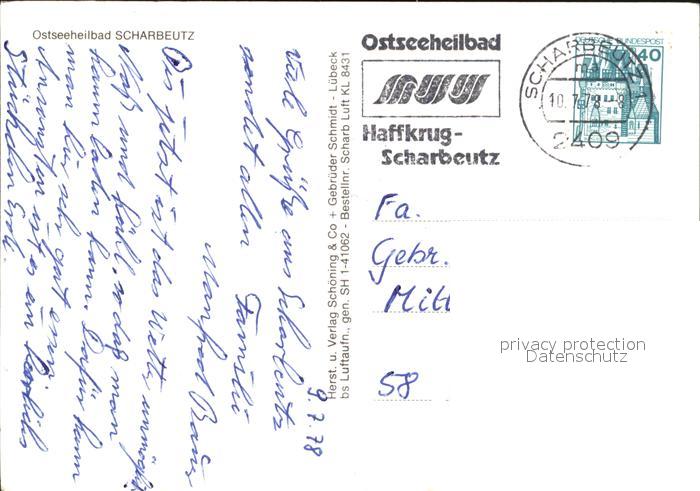 Ostseeheilbad SCHARBEUTZ
9.7.78
Viele Grüße aus Scharbeutz
sendet allen
Familie
Manfred
Bis jetzt ist das Wetter
naß und kühl, so daß man
kaum baden kann. Dafür kann
man hier sehr gut
ist es ein
Herst. u. Verlag Schöning & Co + Gebrüder Schmidt - Lübeck
bs Luftaufn., gen. SH 1-41062 - Bestellnr. Scharb Luft KL 8431
Ostseeheilbad
Haffkrug-
Scharbeutz
SCHARBEUTZ 1
ma
10.7.78-8
2409
DEUTSCHE BUNDESPOST
40
Fa.
Gebr.
Mitt
58
privacy protection
Datenschutz